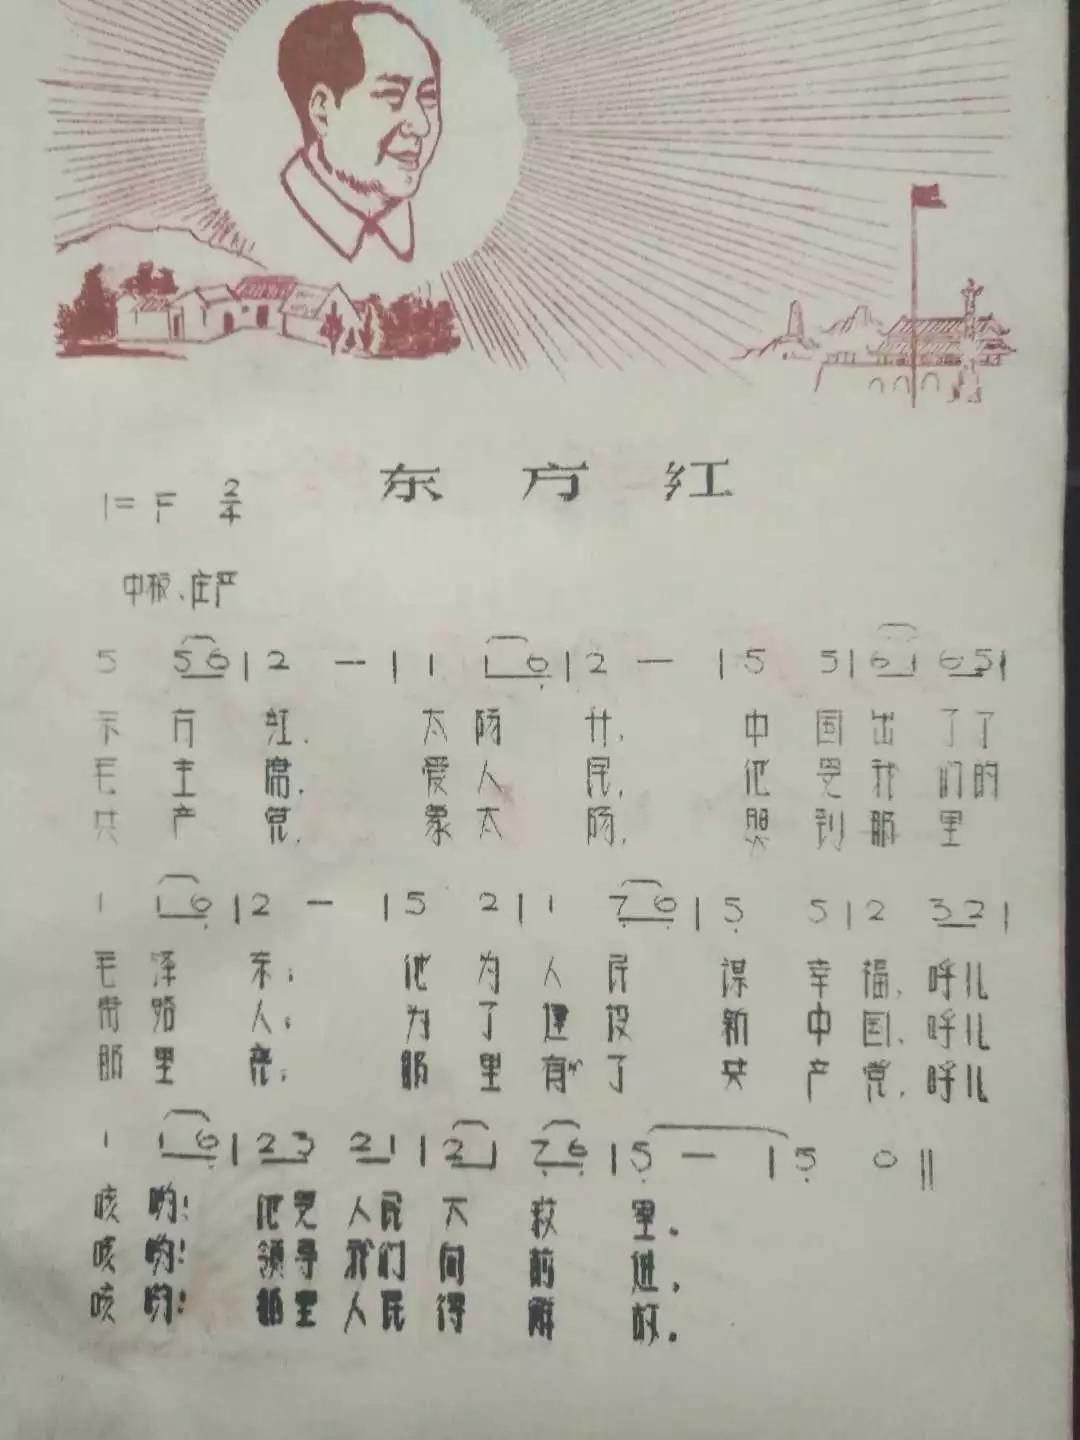 东方红
1=F 2/4
中板、庄严
5 56 | 2 — | 1 16 | 2 — | 5 5 | 61 65 |
东方红, 太阳升, 中国出了了
毛主席, 爱人民, 他是我们的
共产党, 象太阳, 照到那里
1 16 | 2 — | 5 2 | 1 76 | 5 5 | 2 32 |
毛泽东; 他为人民谋幸福, 呼儿
带路人; 为了建设新中国, 呼儿
那里亮; 那里有了共产党, 呼儿
1 16 | 23 21 | 21 76 | 5 — | 5 0 ||
咳哟! 他是人民大救星。
咳哟! 领导我们向前进,
咳哟! 那里人民得解放。